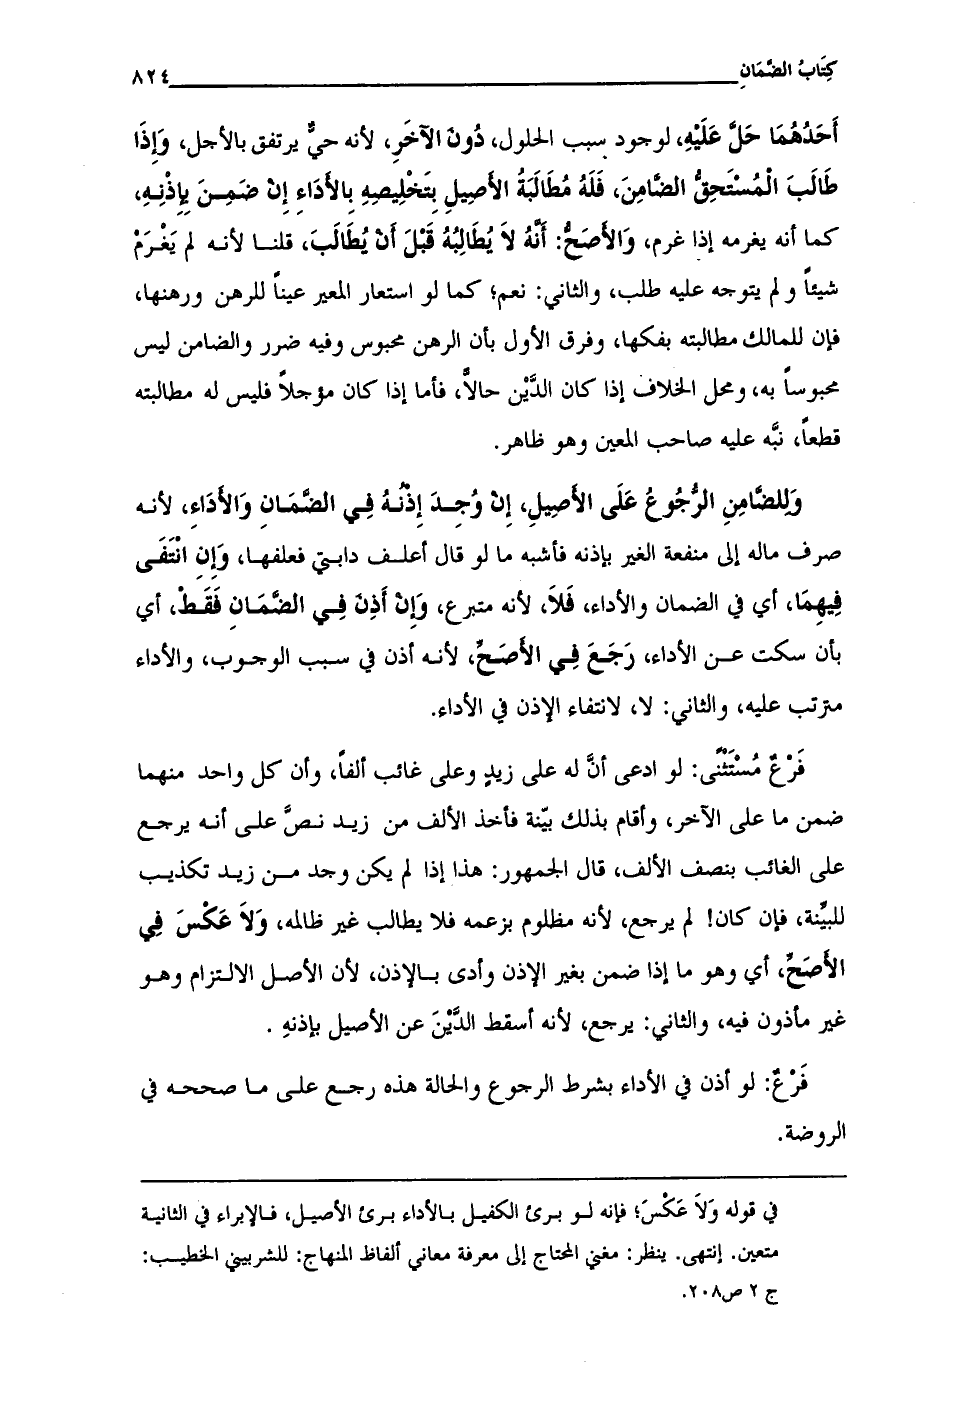 كِتَابُ الضَّمَانِ ٨٢٤
أَحَدُهُمَا حَلَّ عَلَيْهِ، لوجود سبب الحلول، دُونَ الآخَرِ، لأنه حيٌّ يرتفق بالأجل، وَإِذَا
طَالَبَ الْمُسْتَحِقُّ الضَّامِنَ، فَلَهُ مُطَالَبَةُ الأَصِيلِ بِتَخْلِيصِهِ بِالأَدَاءِ إِنْ ضَمِنَ بِإِذْنِهِ،
كما أنه يغرمه إذا غرم، وَالأَصَحُّ: أَنَّهُ لاَ يُطَالِبُهُ قَبْلَ أَنْ يُطَالَبَ، قلنا لأنه لم يَغْرَمْ
شيئاً ولم يتوجه عليه طلب، والثاني: نعم؛ كما لو استعار المعير عيناً للرهن ورهنها،
فإن للمالك مطالبته بفكها، وفرق الأول بأن الرهن محبوس وفيه ضرر والضامن ليس
محبوساً به، ومحل الخلاف إذا كان الدَّيْن حالاًّ، فأما إذا كان مؤجلاً فليس له مطالبته
قطعاً، نبَّه عليه صاحب المعين وهو ظاهر.
وَلِلضَّامِنِ الرُّجُوعُ عَلَى الأَصِيلِ، إِنْ وُجِدَ إِذْنُهُ فِي الضَّمَانِ وَالأَدَاءِ، لأنه
صرف ماله إلى منفعة الغير بإذنه فأشبه ما لو قال أعلف دابتي فعلفها، وَإِنِ انْتَفَى
فِيهِمَا، أي في الضمان والأداء، فَلاَ، لأنه متبرع، وَإِنْ أَذِنَ فِي الضَّمَانِ فَقَطْ، أي
بأن سكت عن الأداء، رَجَعَ فِي الأَصَحِّ، لأنه أذن في سبب الوجوب، والأداء
مترتب عليه، والثاني: لا، لانتفاء الإذن في الأداء.
فَرْعٌ مُسْتَثْنًى: لو ادعى أنَّ له على زيدٍ وعلى غائب ألفاً، وأن كل واحد منهما
ضمن ما على الآخر، وأقام بذلك بيّنة فأخذ الألف من زيد نصَّ على أنه يرجع
على الغائب بنصف الألف، قال الجمهور: هذا إذا لم يكن وجد من زيد تكذيب
للبيِّنة، فإن كان! لم يرجع، لأنه مظلوم بزعمه فلا يطالب غير ظالمه، وَلاَ عَكْسَ فِي
الأَصَحِّ، أي وهو ما إذا ضمن بغير الإذن وأدى بالإذن، لأن الأصل الالتزام وهو
غير مأذون فيه، والثاني: يرجع، لأنه أسقط الدَّيْنَ عن الأصيل بإذنهِ .
فَرْعٌ: لو أذن في الأداء بشرط الرجوع والحالة هذه رجع على ما صححه في
الروضة.
في قوله وَلاَ عَكْسَ؛ فإنه لو برئ الكفيل بالأداء برئ الأصيل، فالإبراء في الثانية
متعين. إنتهى. ينظر: مغني المحتاج إلى معرفة معاني ألفاظ المنهاج: للشربيني الخطيب:
ج ٢ ص٢٠٨.